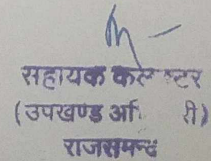 सहायक कले टर
(उपखण्ड अि री)
राजसमन्द